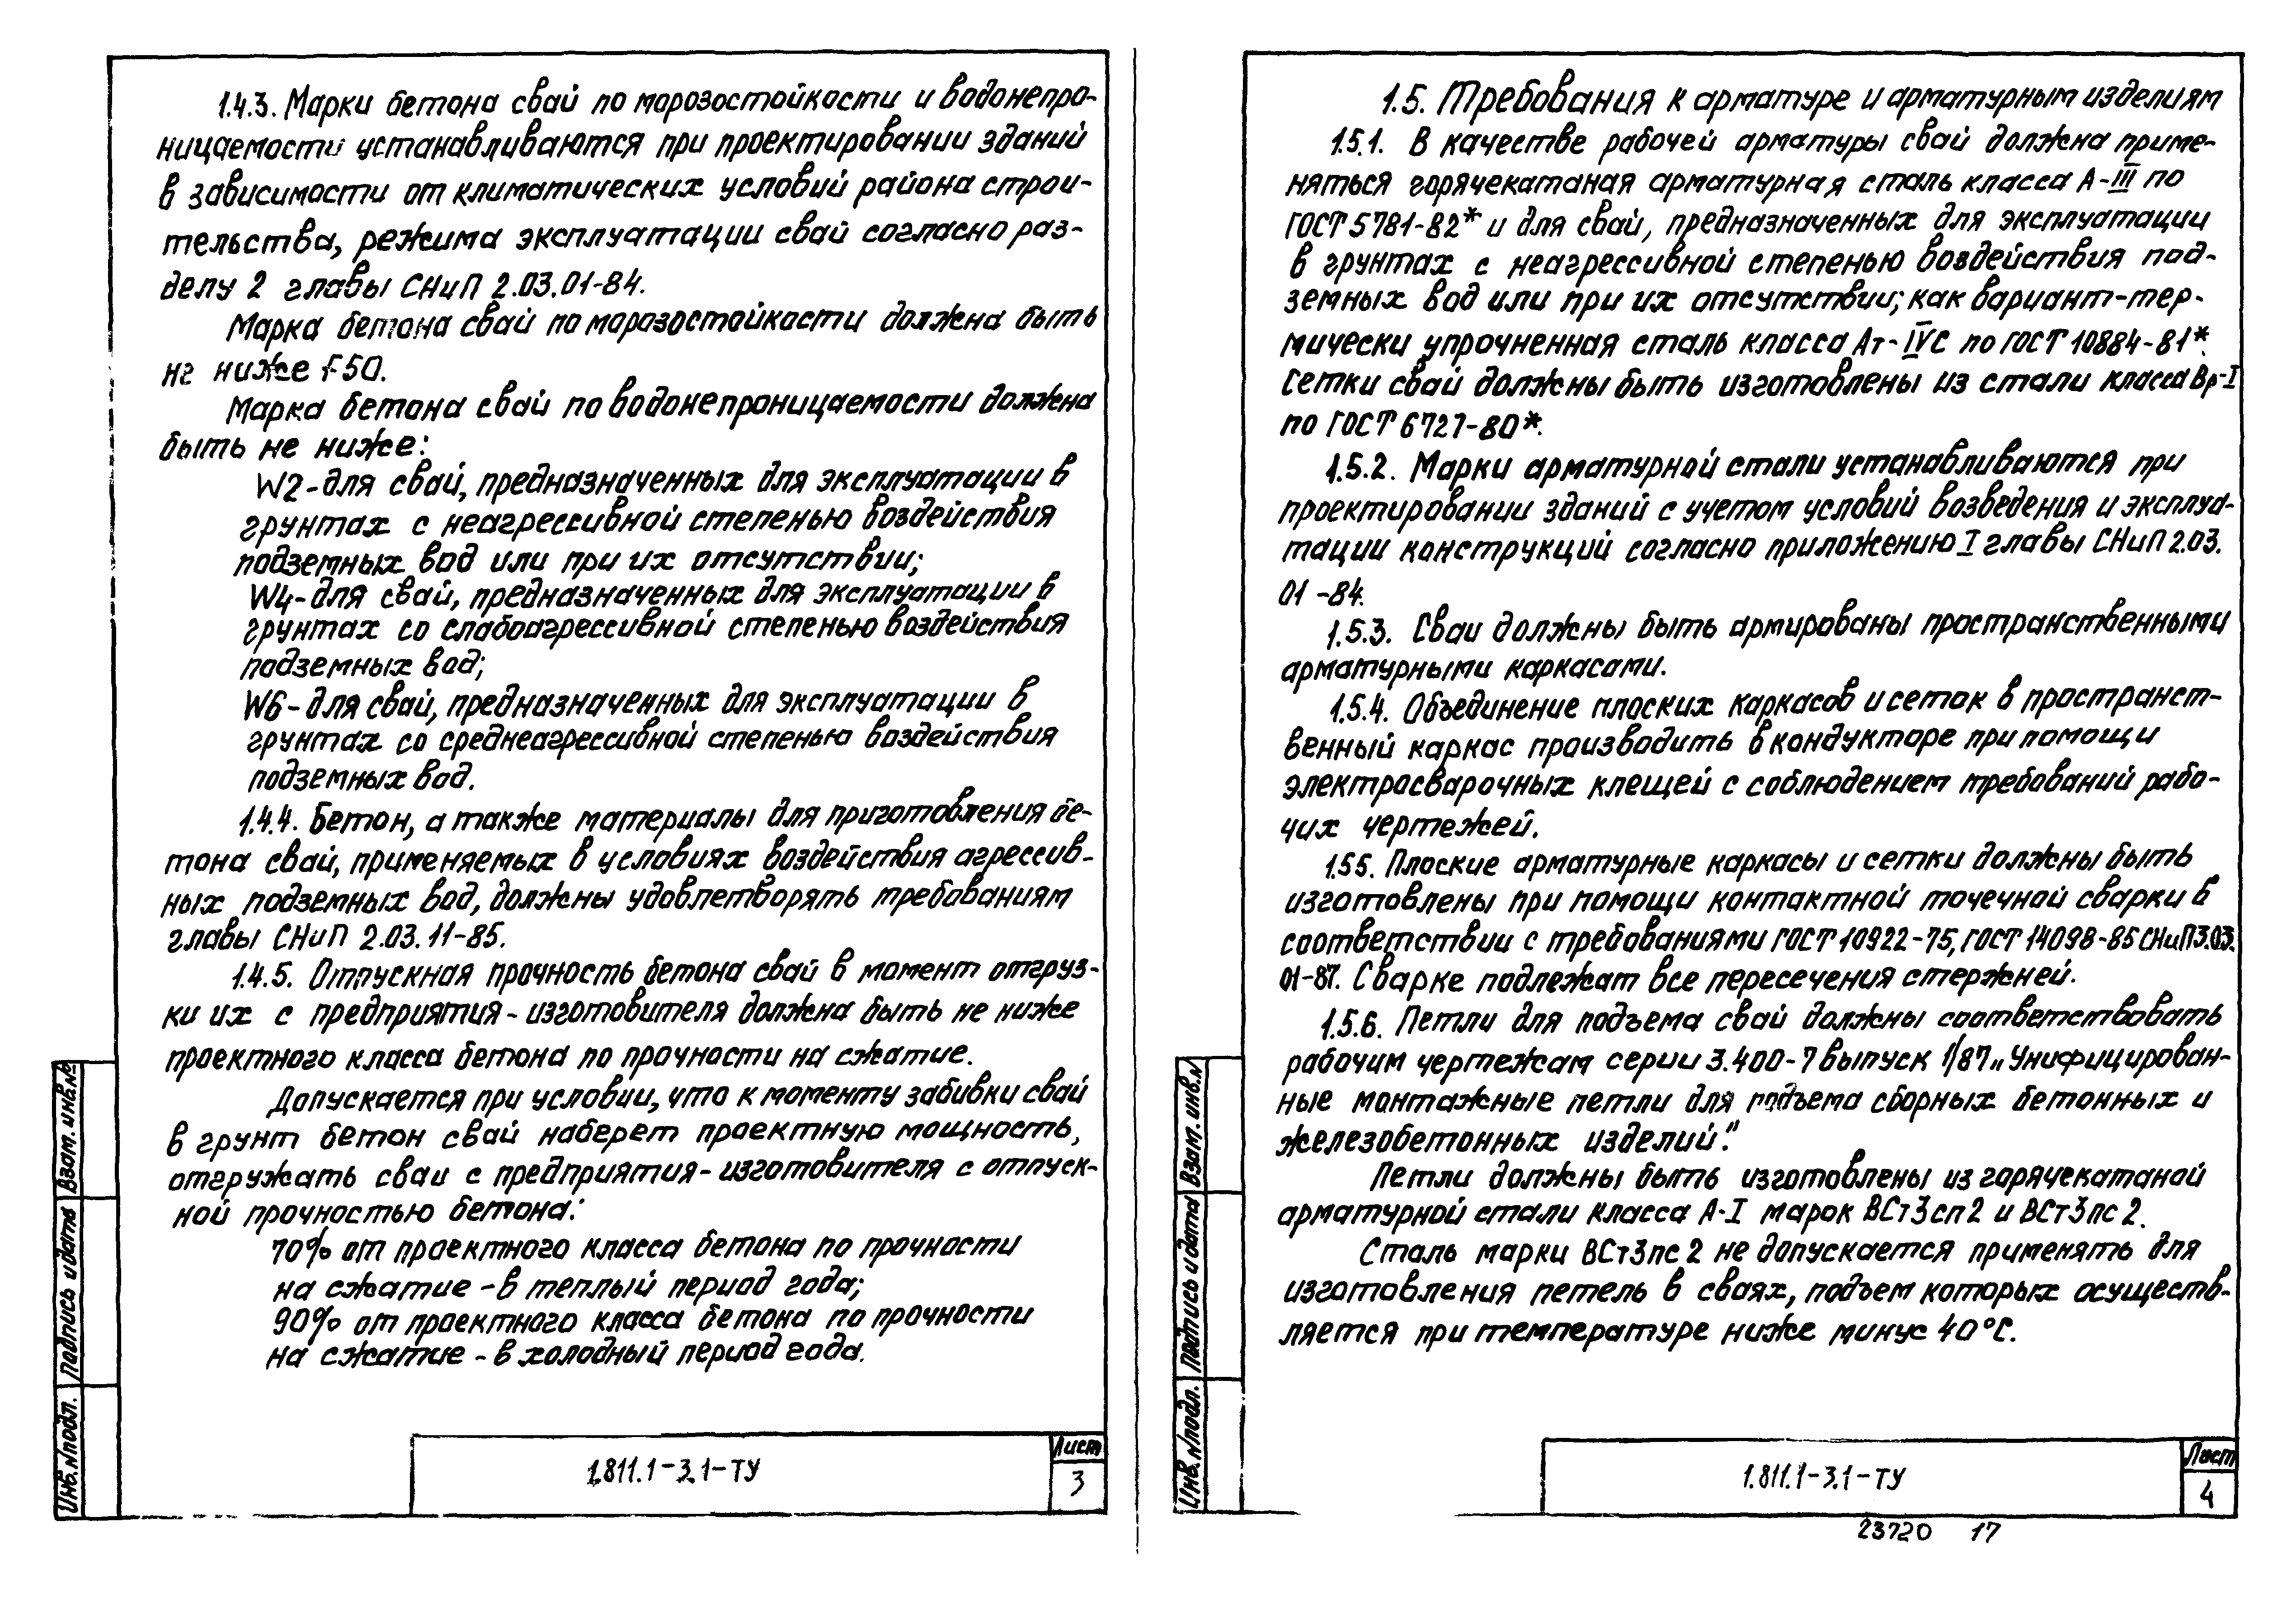 1.4.3. Марки бетона свай по морозостойкости и водонепро-
ницаемости устанавливаются при проектировании зданий
в зависимости от климатических условий района строи-
тельства, режима эксплуатации свай согласно раз-
делу 2 главы СНиП 2.03.01-84.
Марка бетона свай по морозостойкости должна быть
не ниже F50.
Марка бетона свай по водонепроницаемости должна
быть не ниже:
W2-для свай, предназначенных для эксплуатации в
грунтах с неагрессивной степенью воздействия
подземных вод или при их отсутствии;
W4-для свай, предназначенных для эксплуатации в
грунтах со слабоагрессивной степенью воздействия
подземных вод;
W6-для свай, предназначенных для эксплуатации в
грунтах со среднеагрессивной степенью воздействия
подземных вод.
1.4.4. Бетон, а также материалы для приготовления бе-
тона свай, применяемых в условиях воздействия агрессив-
ных подземных вод, должны удовлетворять требованиям
главы СНиП 2.03.11-85.
1.4.5. Отпускная прочность бетона свай в момент отгруз-
ки их с предприятия-изготовителя должна быть не ниже
проектного класса бетона по прочности на сжатие.
Допускается при условии, что к моменту забивки свай
в грунт бетон свай наберет проектную мощность,
отгружать сваи с предприятия-изготовителя с отпуск-
ной прочностью бетона:
70% от проектного класса бетона по прочности
на сжатие - в теплый период года;
90% от проектного класса бетона по прочности
на сжатие - в холодный период года.
Инв.№подл. Подпись и дата Взам. инв.№
1.811.1-3.1-ТУ
Лист
3
1.5. Требования к арматуре и арматурным изделиям
1.5.1. В качестве рабочей арматуры свай должна приме-
няться горячекатаная арматурная сталь класса А-III по
ГОСТ 5781-82* и для свай, предназначенных для эксплуатации
в грунтах с неагрессивной степенью воздействия под-
земных вод или при их отсутствии; как вариант-тер-
мически упрочненная сталь класса Ат-IVC по ГОСТ 10884-81*.
Сетки свай должны быть изготовлены из стали класса Вр-I
по ГОСТ 6727-80*.
1.5.2. Марки арматурной стали устанавливаются при
проектировании зданий с учетом условий возведения и эксплуа-
тации конструкций согласно приложению I главы СНиП 2.03.
01-84.
1.5.3. Сваи должны быть армированы пространственными
арматурными каркасами.
1.5.4. Объединение плоских каркасов и сеток в пространст-
венный каркас производить в кондукторе при помощи
электросварочных клещей с соблюдением требований рабо-
чих чертежей.
1.5.5. Плоские арматурные каркасы и сетки должны быть
изготовлены при помощи контактной точечной сварки в
соответствии с требованиями ГОСТ 10922-75, ГОСТ 14098-85 СНиП 3.03.
01-87. Сварке подлежат все пересечения стержней.
1.5.6. Петли для подъема свай должны соответствовать
рабочим чертежам серии 3.400-7 выпуск 1/87 „Унифицирован-
ные монтажные петли для подъема сборных бетонных и
железобетонных изделий".
Петли должны быть изготовлены из горячекатаной
арматурной стали класса А-I марок ВСт3сп2 и ВСт3пс2.
Сталь марки ВСт3пс2 не допускается применять для
изготовления петель в сваях, подъем которых осуществ-
ляется при температуре ниже минус 40°С.
Инв.№подл. Подпись и дата Взам. инв.№
1.811.1-3.1-ТУ
Лист
4
23720 17